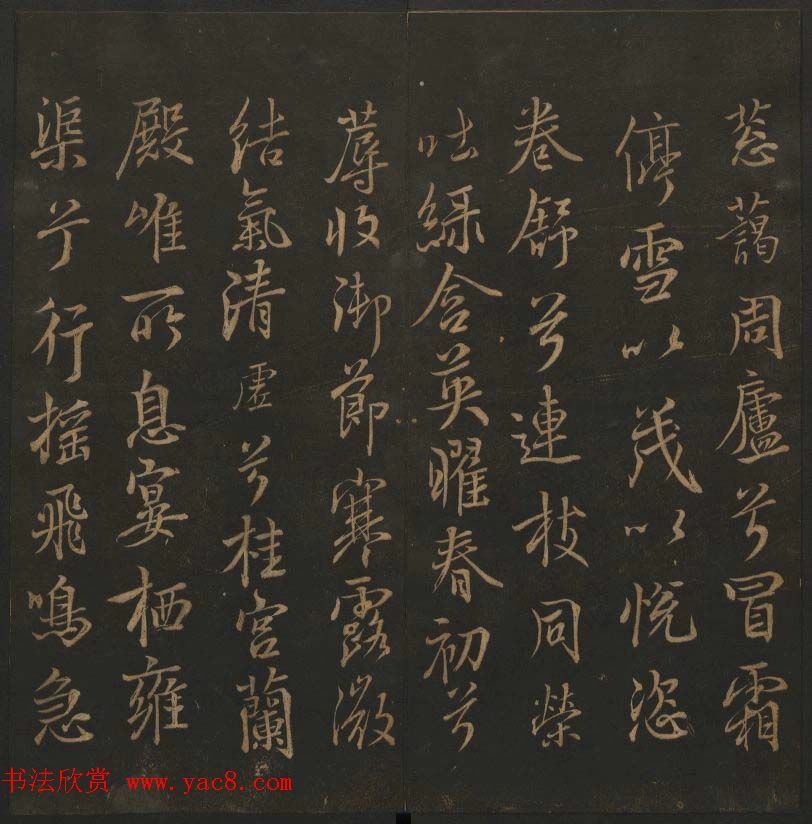 蕊藹周廬兮冒霜
停雪以茂以悅恣
卷舒兮連枝同榮
吐綠含英曜春初兮
蓐收御節寒露微
結氣清虛兮桂宮蘭
殿唯所息宴栖雍
渠兮行搖飛鳴急
书法欣赏 www.yac8.com